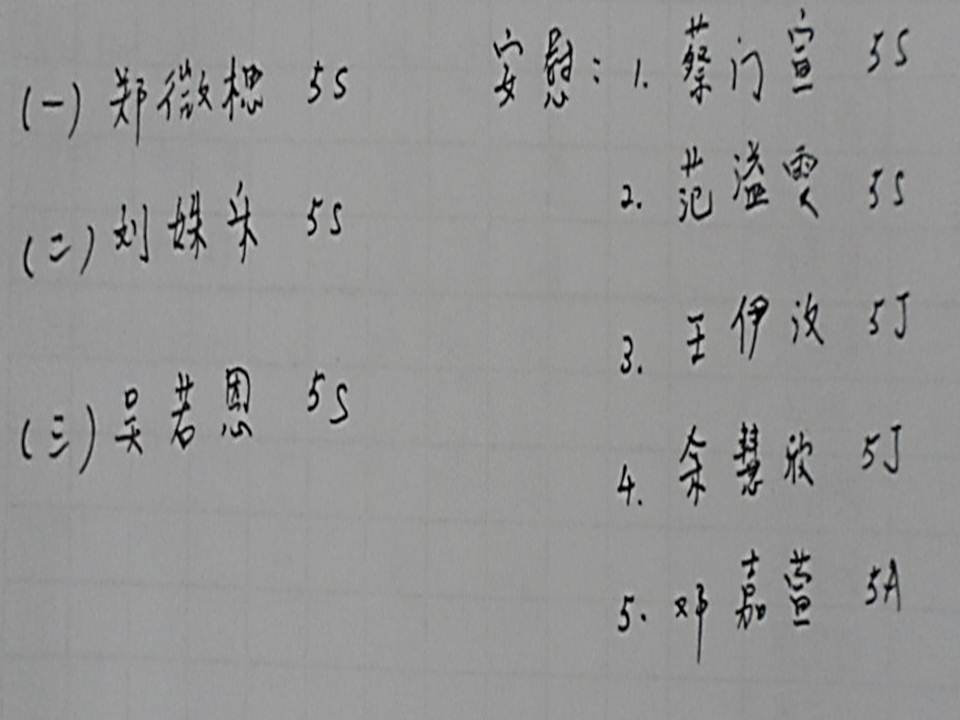 (一) 郑微想 5S
(二) 刘姝乐 5S
(三) 吴若恩 5S
安慰: 1. 蔡门萱 5S
2. 范溢雯 5S
3. 王伊汝 5J
4. 余慧欣 5J
5. 邓嘉萱 5A